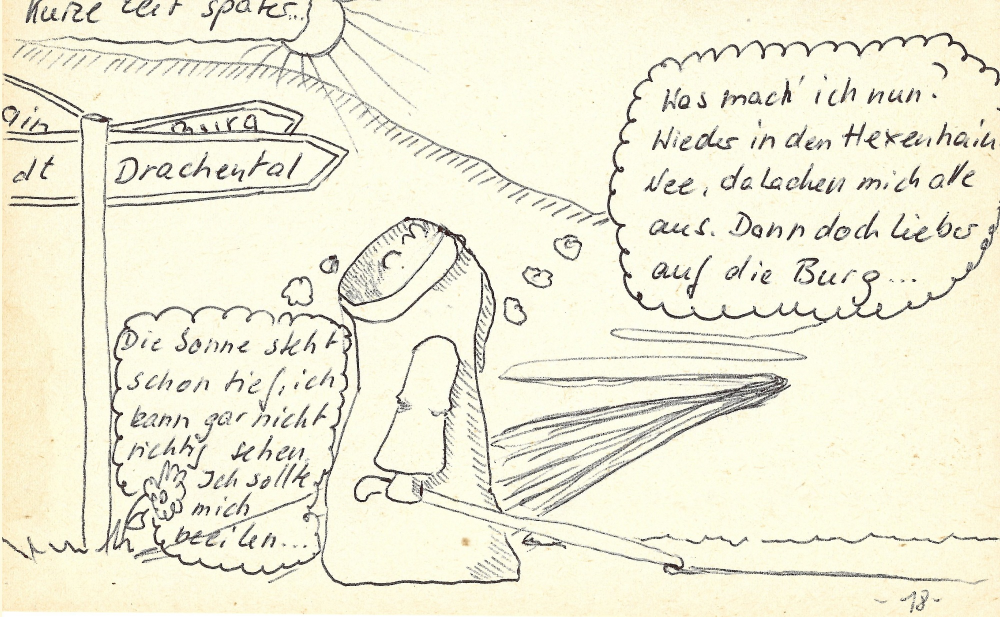 Kurze Zeit später...
ain
Burg
dt
Drachental
Was mach' ich nun?
Wieder in den Hexenhain
Nee, da lachen mich alle
aus. Dann doch lieber
auf die Burg...
Die Sonne steht
schon tief, ich
kann gar nicht
richtig sehen.
Ich sollte
mich
beeilen...
-18-